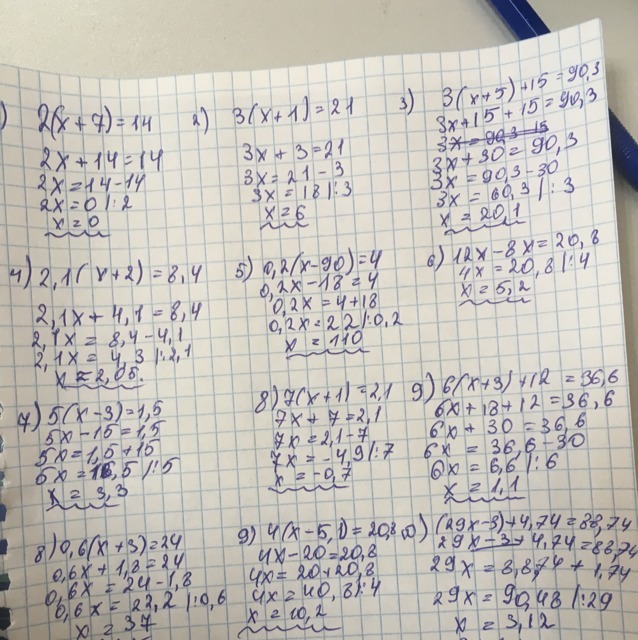 ) 2(x+7)=14
2x+14=14
2x=14-14
2x=0 |:2
x=0
2) 3(x+1)=21
3x+3=21
3x=21-3
3x=18 |:3
x=6
3) 3(x+5)+15=90,3
3x+15+15=90,3
3x=90,3-15
3x+30=90,3
3x=90,3-30
3x=60,3 |:3
x=20,1
4) 2,1(x+2)=8,4
2,1x+4,1=8,4
2,1x=8,4-4,1
2,1x=4,3 |:2,1
x=2,05.
5) 0,2(x-90)=4
0,2x-18=4
0,2x=4+18
0,2x=22 |:0,2
x=110
6) 12x-8x=20,8
4x=20,8 |:4
x=5,2
7) 5(x-3)=1,5
5x-15=1,5
5x=1,5+15
5x=16,5 |:5
x=3,3
8) 7(x+1)=2,1
7x+7=2,1
7x=2,1-7
7x=-4,9 |:7
x=-0,7
9) 6(x+3)+12=36,6
6x+18+12=36,6
6x+30=36,6
6x=36,6-30
6x=6,6 |:6
x=1,1
8) 0,6(x+3)=24
0,6x+1,8=24
0,6x=24-1,8
0,6x=22,2 |:0,6
x=37
9) 4(x-5,1)=20,8
4x-20=20,8
4x=20+20,8
4x=40,8 |:4
x=10,2
10) (29x-3)+4,74=88,74
29x-3+4,74=88,74
29x=8,874+1,74
29x=90,48 |:29
x=3,12